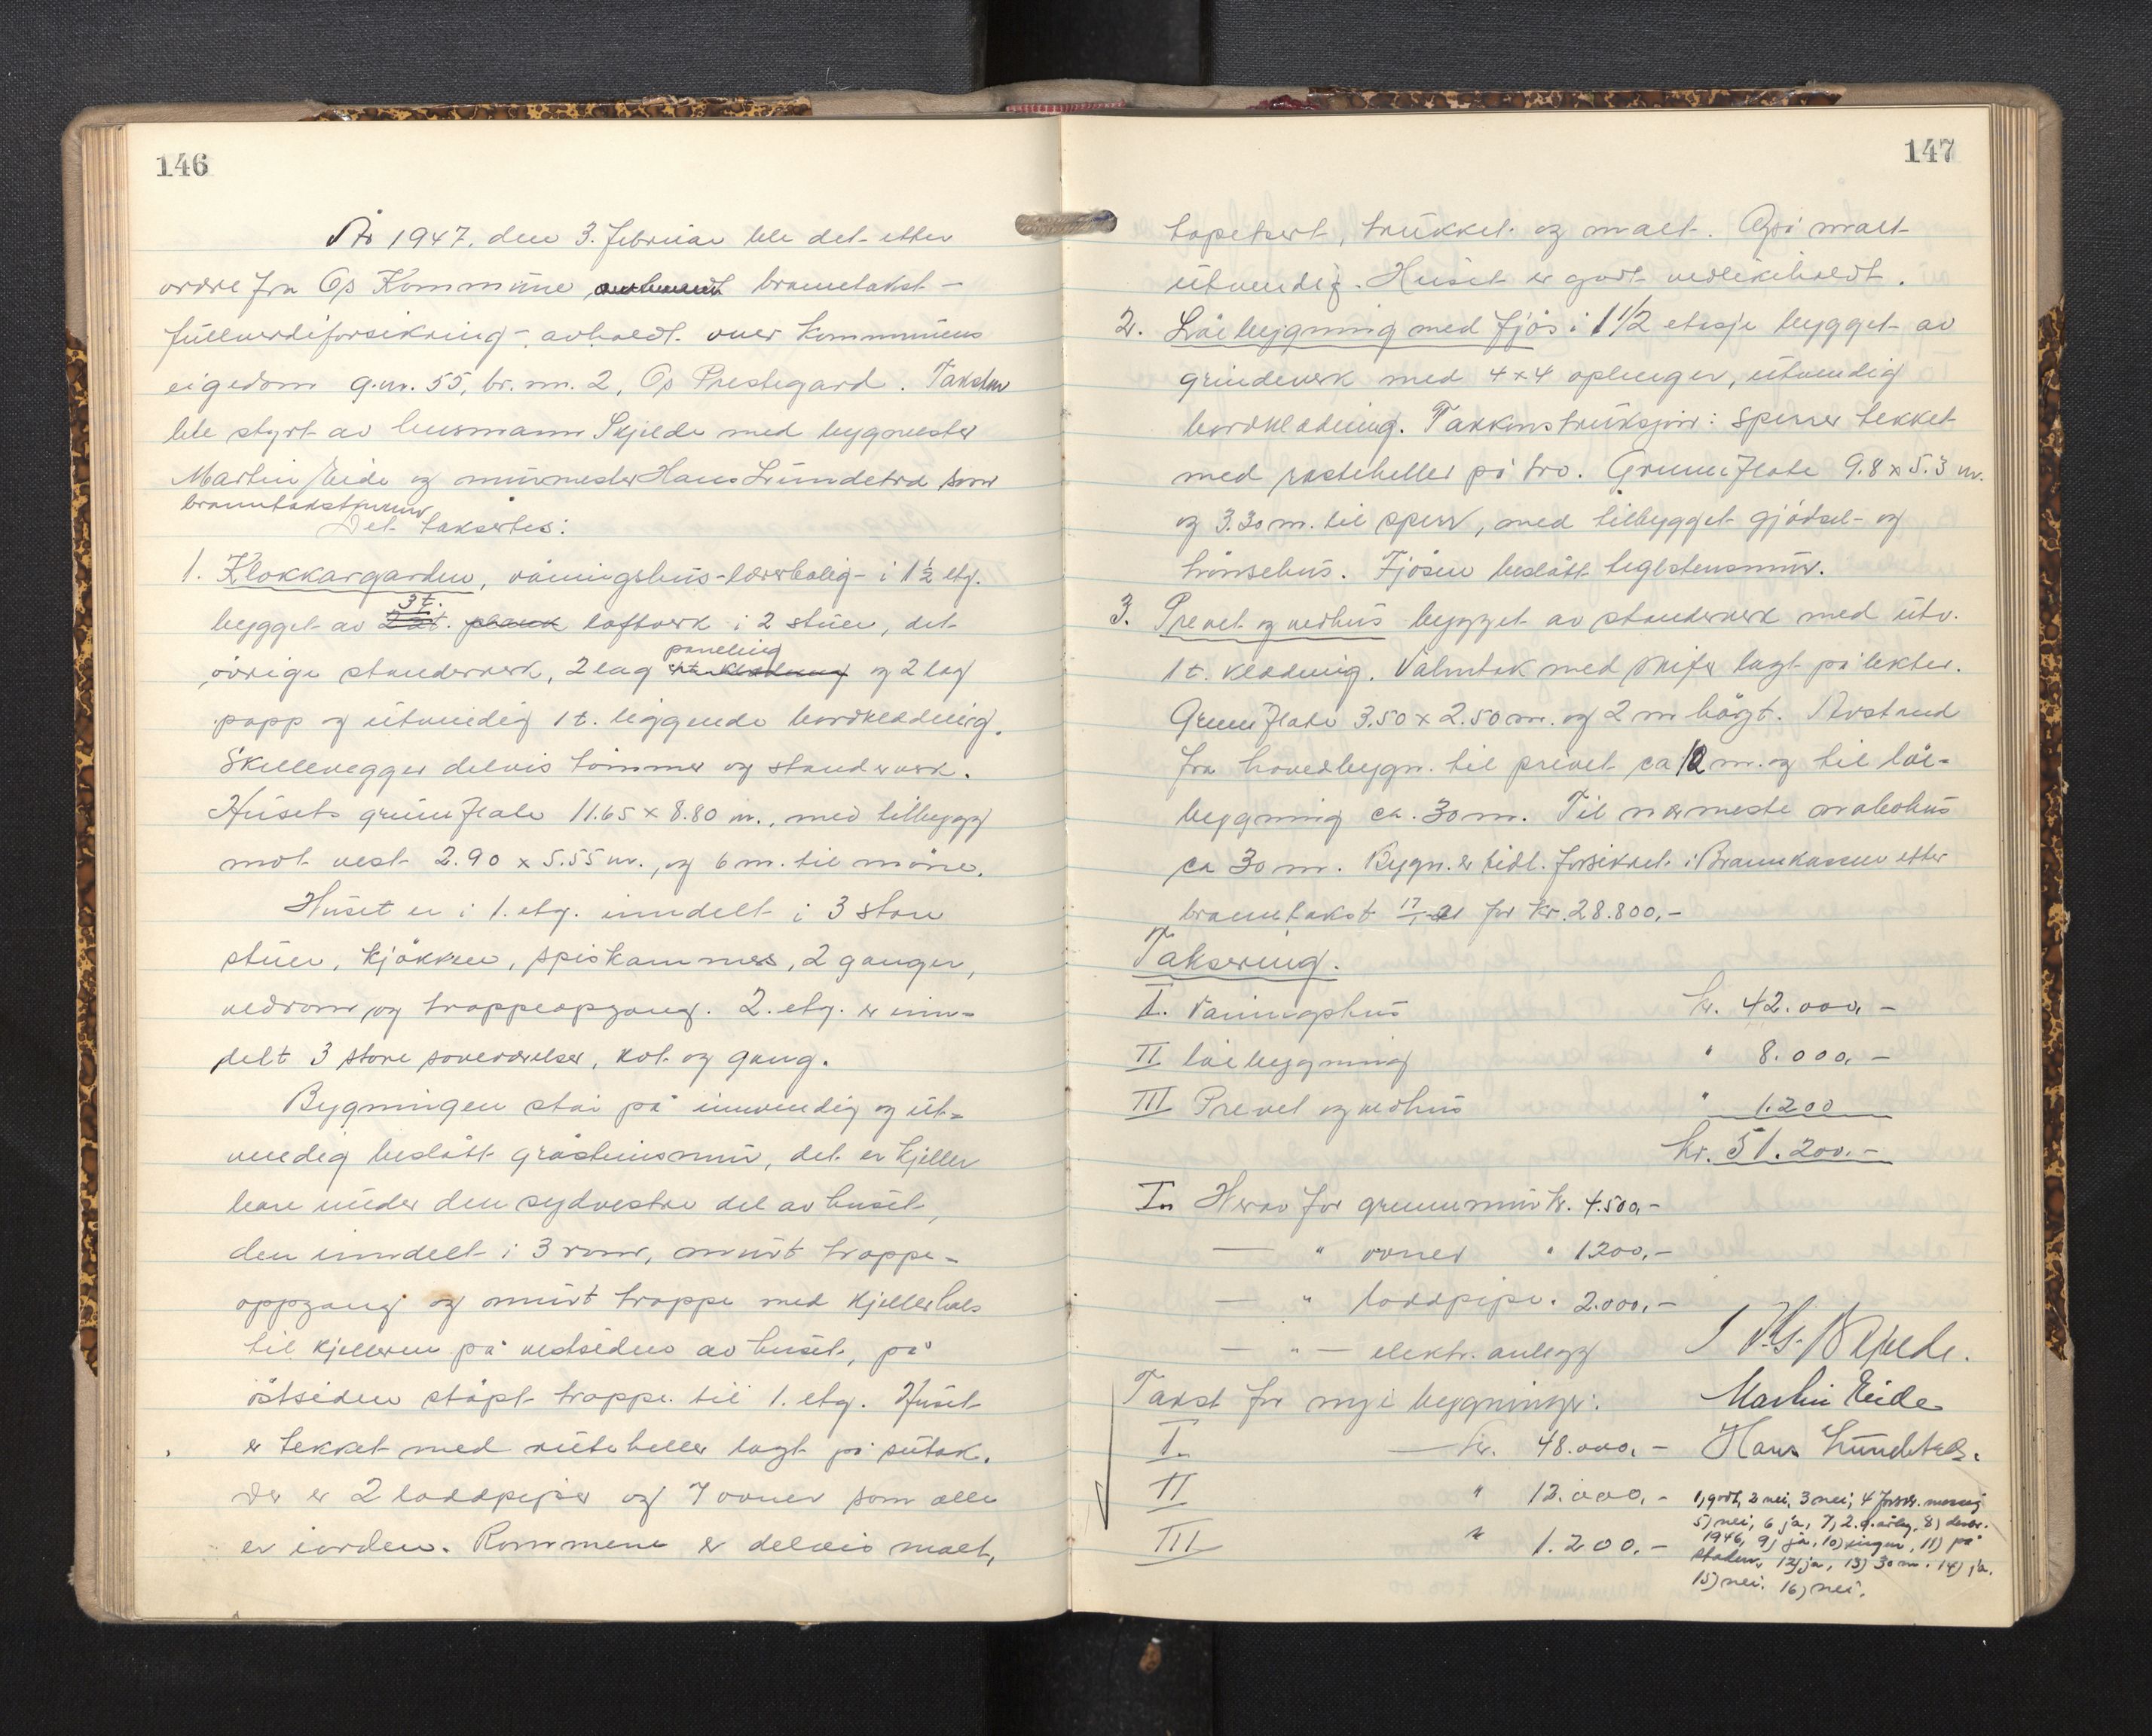 146
År 1947, den 3. februar ble det etter
ordre fra Os Kommune branntakst-
fullverdiforsikring - avholdt over kommunens
eigedom g.nr. 55, br. nr. 2, Os Prestegard. Taksten
ble styrt av lensmann Skjelde med bygmester
Martin Eide og murmester Hans Lundetræ som
branntakstmenn
Det taksertes:
1. Klokkargarden, våningshus-lærerbolig- i 1½ etg.
3 t.
bygget av 2 ½ t. plank laftverk i 2 stuer, det
paneling
øvrige standerverk, 2 lag og 2 lag
papp og utvendig 1 t. liggende bordkledning.
Skillevegger delvis tømmer og standerverk.
Husets grunnflate 11.65 x 8.80 m., med tilbygg
mot vest 2.90 x 5.55 m., og 6 m. til møne.
Huset er i 1. etg. inndelt i 3 store
stuer, kjøkken, spiskammer, 2 ganger,
vedrom og trappeopgang. 2. etg. er inn-
delt 3 store soveværelser, kot og gang.
Bygningen står på innvendig og ut-
vendig beslått gråsteinsmur, det er kjeller
bare under den sydvestre del av huset,
den inndelt i 3 rom, murt trappe-
oppgang og murt trappe med kjellerhals
til kjelleren på vestsiden av huset, på
østsiden støpt trappe til 1. etg. Huset
er tekket med ruteheller lagt på sutak.
Der er 2 loddpiper og 7 ovner som alle
er iorden. Rommene er delvis malt,
147
tapetsert, trukket og malt. Også malt
utvendig. Huset er godt vedlikeholdt.
2. Løebygning med fjøs i 1 1/2 etasje bygget av
grindverk med 4x4 oplenger, utvendig
bordkledning. Takkonstruksjon: sperrer tekket
med rasteheller på tro. Grunnflate 9.8 x 5.3 m.
og 3.30 m. til sperr, med tilbygget gjødsel- og
hønsehus. Fjøsen beslått teglstensmur.
3. Prevet og vedhus bygget av standerverk med utv.
1 t. kledning. Valmtak med skifer lagt på lekter.
Grunnflate 3.50 x 2.50 m. og 2 m høgt. Avstand
fra hovedbygn. til privet ca 12 m. og til løe-
bygning ca. 30 m. Til nærmeste nabohus
ca 30 m. Bygn. er tidl. forsikret i Brannkassen etter
branntakst for kr. 28.800,-
Taksering.
I. Våningshus kr. 42.000,-
II løebygning " 8.000,-
III Prevet og vedhus " 1.200
kr. 51.200.-
I. Herav for grunnmur kr. 4.500,-
— " ovner " 1200,-
— " loddpipe. 2.000,-
— " — elektr. anlegg
Skjelde.
Takst for nye bygninger: Martin Eide
I. — kr. 48.000,- Hans Lundetræ.
II " 12.000,-
III " 1.200.-
1, godt, 2 nei, 3 nei, 4 forsv. messig
5) nei, 6 ja, 7) 2.g. årleg, 8) desbr.
1946, 9) ja, 10) ingen, 11) på
staden, 12) ja, 13) 30 m. 14) ja.
15) nei. 16) nei.